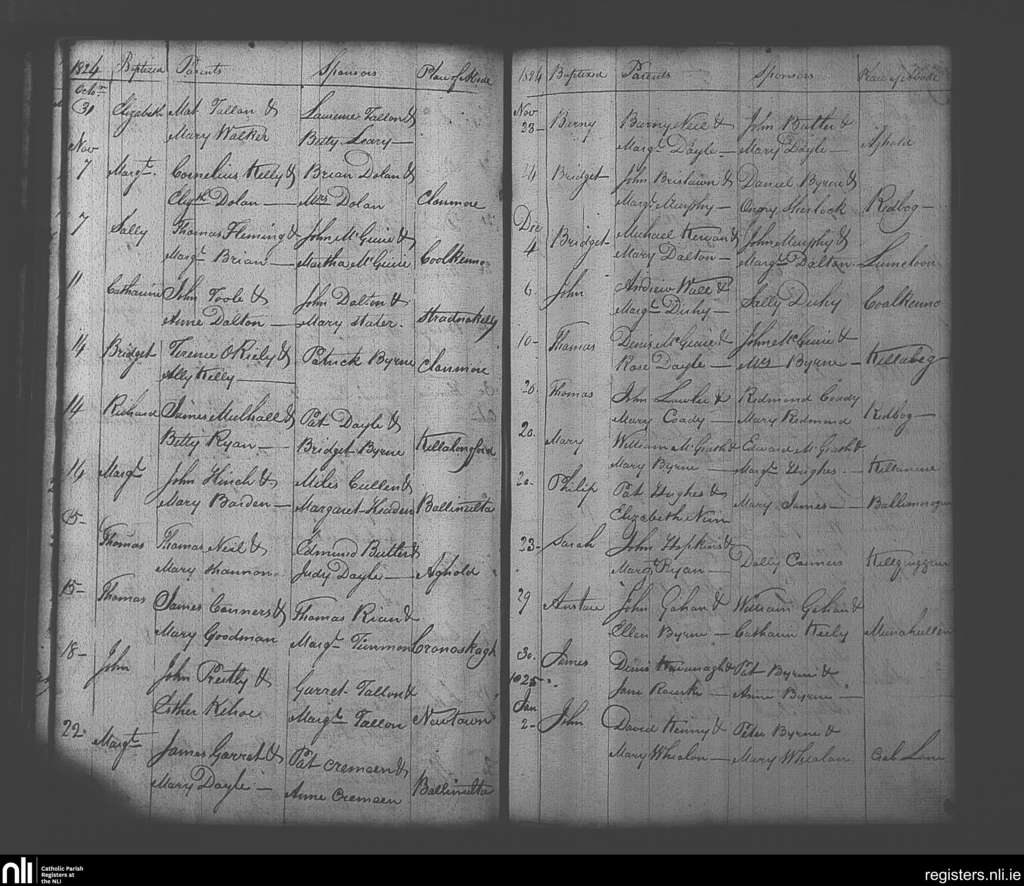 1824 Baptized Parents Sponsors Place of Abode
Octr
31 Elizabeth Mat Tallon & Laurence Tallon &
Mary Walker Betty Leary —
Nov
7 Margt. Cornelius Kelly & Brian Dolan &
Elizth Dolan — Mrs Dolan Clonmore
7 Sally Thomas Fleming & John McGuire &
Margt Brian — Martha McGuire Coolkenno
11 Catharine John Toole & John Dalton &
Anne Dalton — Mary Hater. Stradnakelly
14 Bridget Terence ORiely & Patrick Byrne Clonmore
Ally Kelly —
14 Richard James Mulhall & Pat Doyle &
Betty Ryan — Bridget Byrne Killalongford
14 Margt John Hinch & Miles Cullen &
Mary Barden — Margaret Ballinulta
15 —
Thomas Thomas Neil & Edmund Butler &
Mary Shannon. Judy Doyle — Aghold
15 — Thomas James Conners & Thomas Rian &
Mary Goodman Margt Timmon Cronoskagh
18 — John John Prestly & Garret Tallon &
Esther Kehoe Margt Tallon Newtown
22. Margt James Garret & Pat Cremeen &
Mary Doyle — Anne Cremeen Ballinulta
1824 Baptized Parents Sponsors Place of Abode
Nov
23 — Berny Barny Neil & John Butler &
Margt Doyle — Mary Doyle — Aghold
24 Bridget John Bristawn & Daniel Byrne &
Margt Murphy — Onory Sherlock Redbog —
Dec
4 Bridget Michael Kerwan & John Murphy &
Mary Dalton — Margt Dalton
6 John Andrew Wall &
Margt Duhy — Sally Duhy Coolkenno
10 — Thomas Denis McGuire & John McGuire &
Rose Doyle — Mrs Byrne — Killabeg
20. Thomas John Lawler & Redmond Coady
Mary Coady — Mary Redmond Redbog —
20. Mary William McGrath & Edward McGrath &
Mary Byrne — Margt Hughes. —
20 — Philip Pat Hughes & Mary James —
Elizabeth Nun
23 — Sarah John Hopkins &
Margt Ryan — Dolly Conners
29 Anstace John Gahan & William Gahan &
Ellen Byrne — Catharin Kiely Munahullen
30. James Denis Kavanagh & Pat Byrne &
1825 Jane Rourke — Anne Byrne —
Jan
2 — John David Kenny & Peter Byrne &
Mary Whealon — Mary Whealan
nli Catholic Parish
Registers at
the NLI
registers.nli.ie